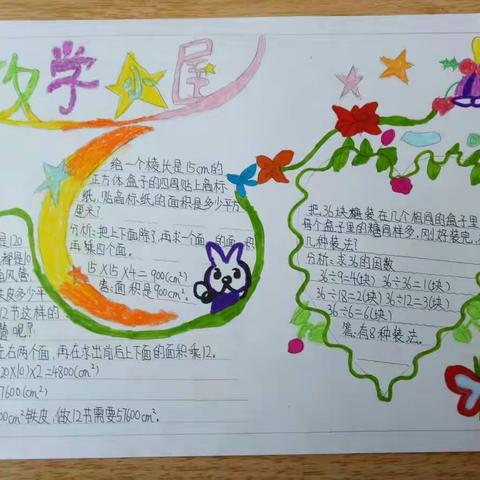 数学小屋
给一个棱长是15cm的
正方体盒子的四周贴上商标
纸,贴商标纸的面积是多少平方
厘米?
分析:把上下面除了,再求一个面的面积
再乘四个面。
15×15×4=900(cm²)
答:面积是900cm²。
是120
都是10
通风管,
铁皮多少平
12节这样的
管呢?
左右两个面,再在求出前后上下面的面积乘12。
20×10)×2=4800(cm²)
7600(cm²)
00cm²铁皮,做12节需要57600cm²。
把36块糖装在几个相同的盒子里
每个盒子里的糖同样多,刚好装完,
几种装法?
分析:求36的因数
36÷9=4(块) 36÷36=1(块)
36÷18=2(块) 36÷12=3(块)
36÷6=6(块)
答:有8种装法。